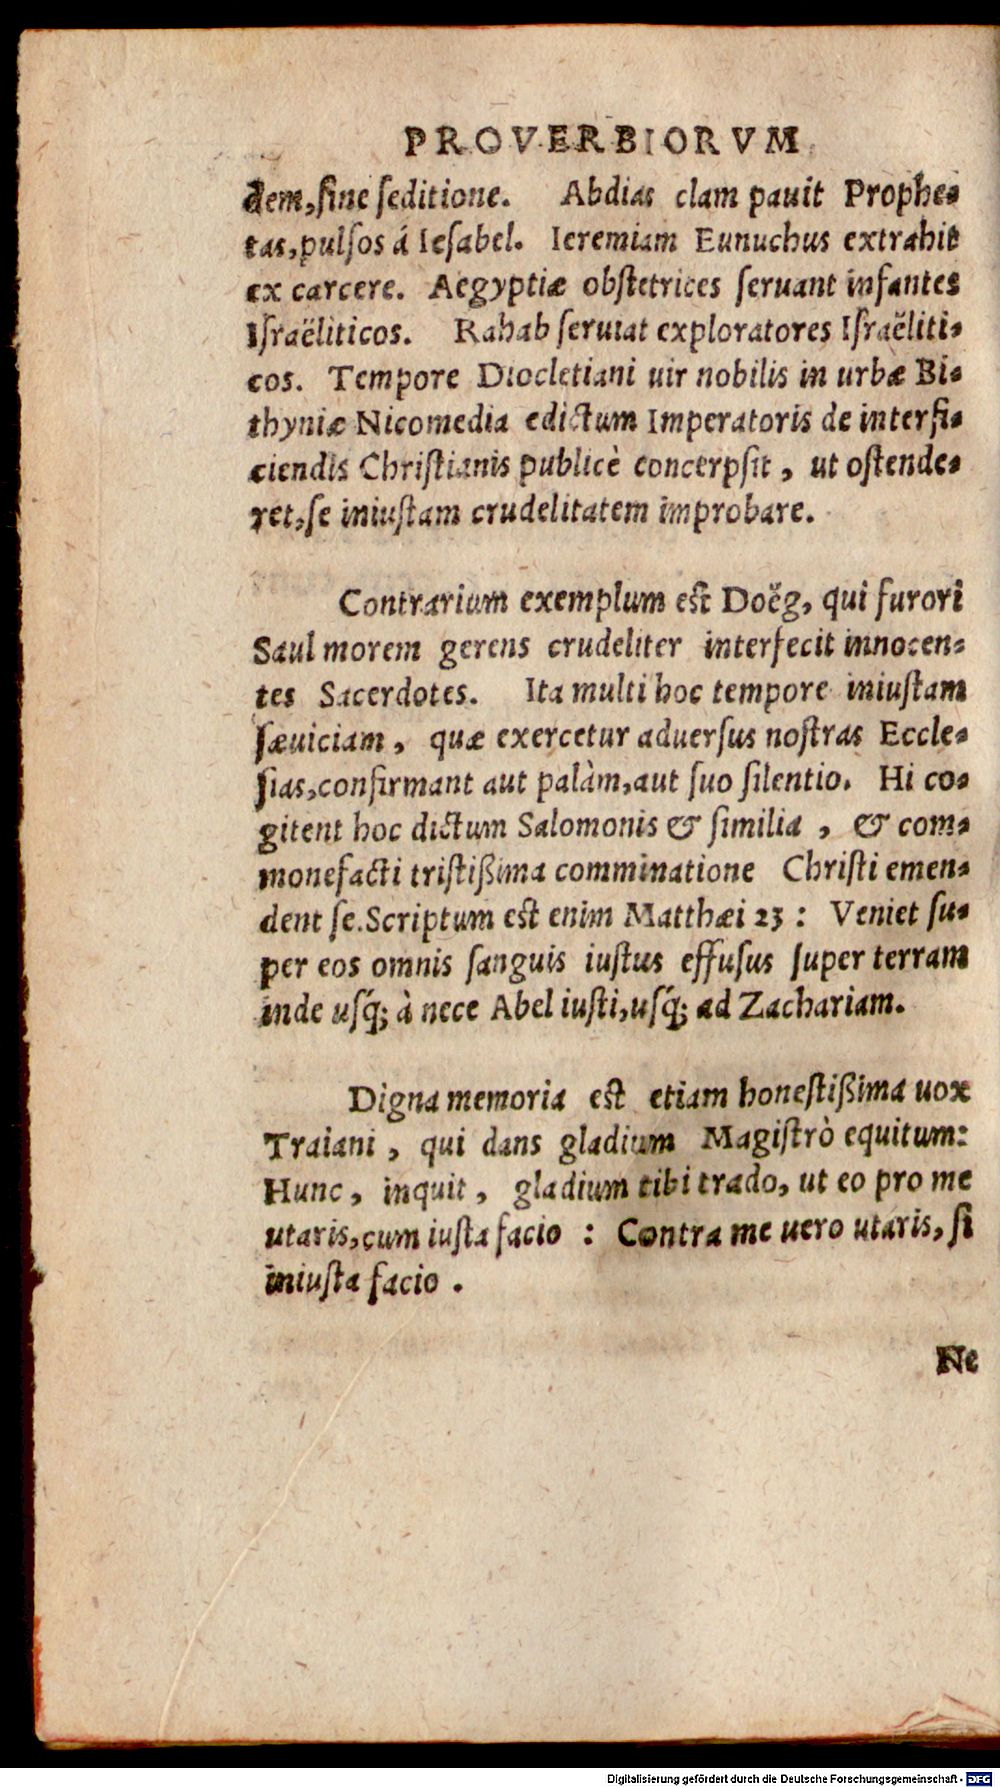 PROVERBIORVM
dem,ſine ſeditione. Abdias clam pauit Prophe-
tas,pulſos á Ieſabel. Ieremiam Eunuchus extrahit
ex carcere. Aegyptiæ obſtetrices ſeruant infantes
Iſraëliticos. Rahab ſeruat exploratores Iſraëliti-
cos. Tempore Diocletiani uir nobilis in urbæ Bi-
thyniæ Nicomedia edictum Imperatoris de interfi-
ciendis Chriſtianis publicè concerpſit, ut oſtende-
ret,ſe iniuſtam crudelitatem improbare.
Contrarium exemplum eſt Doëg, qui furori
Saul morem gerens crudeliter interfecit innocen-
tes Sacerdotes. Ita multi hoc tempore iniuſtam
ſæuiciam, quæ exercetur aduerſus noſtras Eccle-
ſias,confirmant aut palàm,aut ſuo ſilentio. Hi co-
gitent hoc dictum Salomonis & ſimilia, & com-
monefacti triſtißima comminatione Chriſti emen-
dent ſe.Scriptum eſt enim Matthæi 23: Veniet ſu-
per eos omnis ſanguis iuſtus effuſus ſuper terram
inde uſq́; à nece Abel iuſti,uſq́; ad Zachariam.
Digna memoria eſt etiam honeſtißima uox
Traiani, qui dans gladium Magiſtrò equitum:
Hunc, inquit, gladium tibi trado, ut eo pro me
utaris,cum iuſta facio : Contra me uero utaris, ſi
iniuſta facio.
Ne
Digitalisierung gefördert durch die Deutsche Forschungsgemeinschaft - DFG